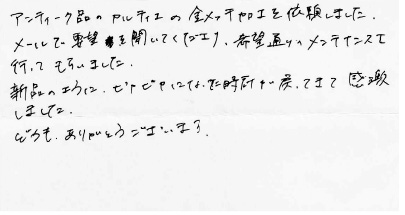 アンティーク品のカルティエの金メッキ加工を依頼しました.
メールで要望を聞いてくださり、希望通りのメンテナンスを
行ってもらいました.
新品のように、ピカピカになった時計が戻ってきて感激
しました.
どうも、ありがとうございます.